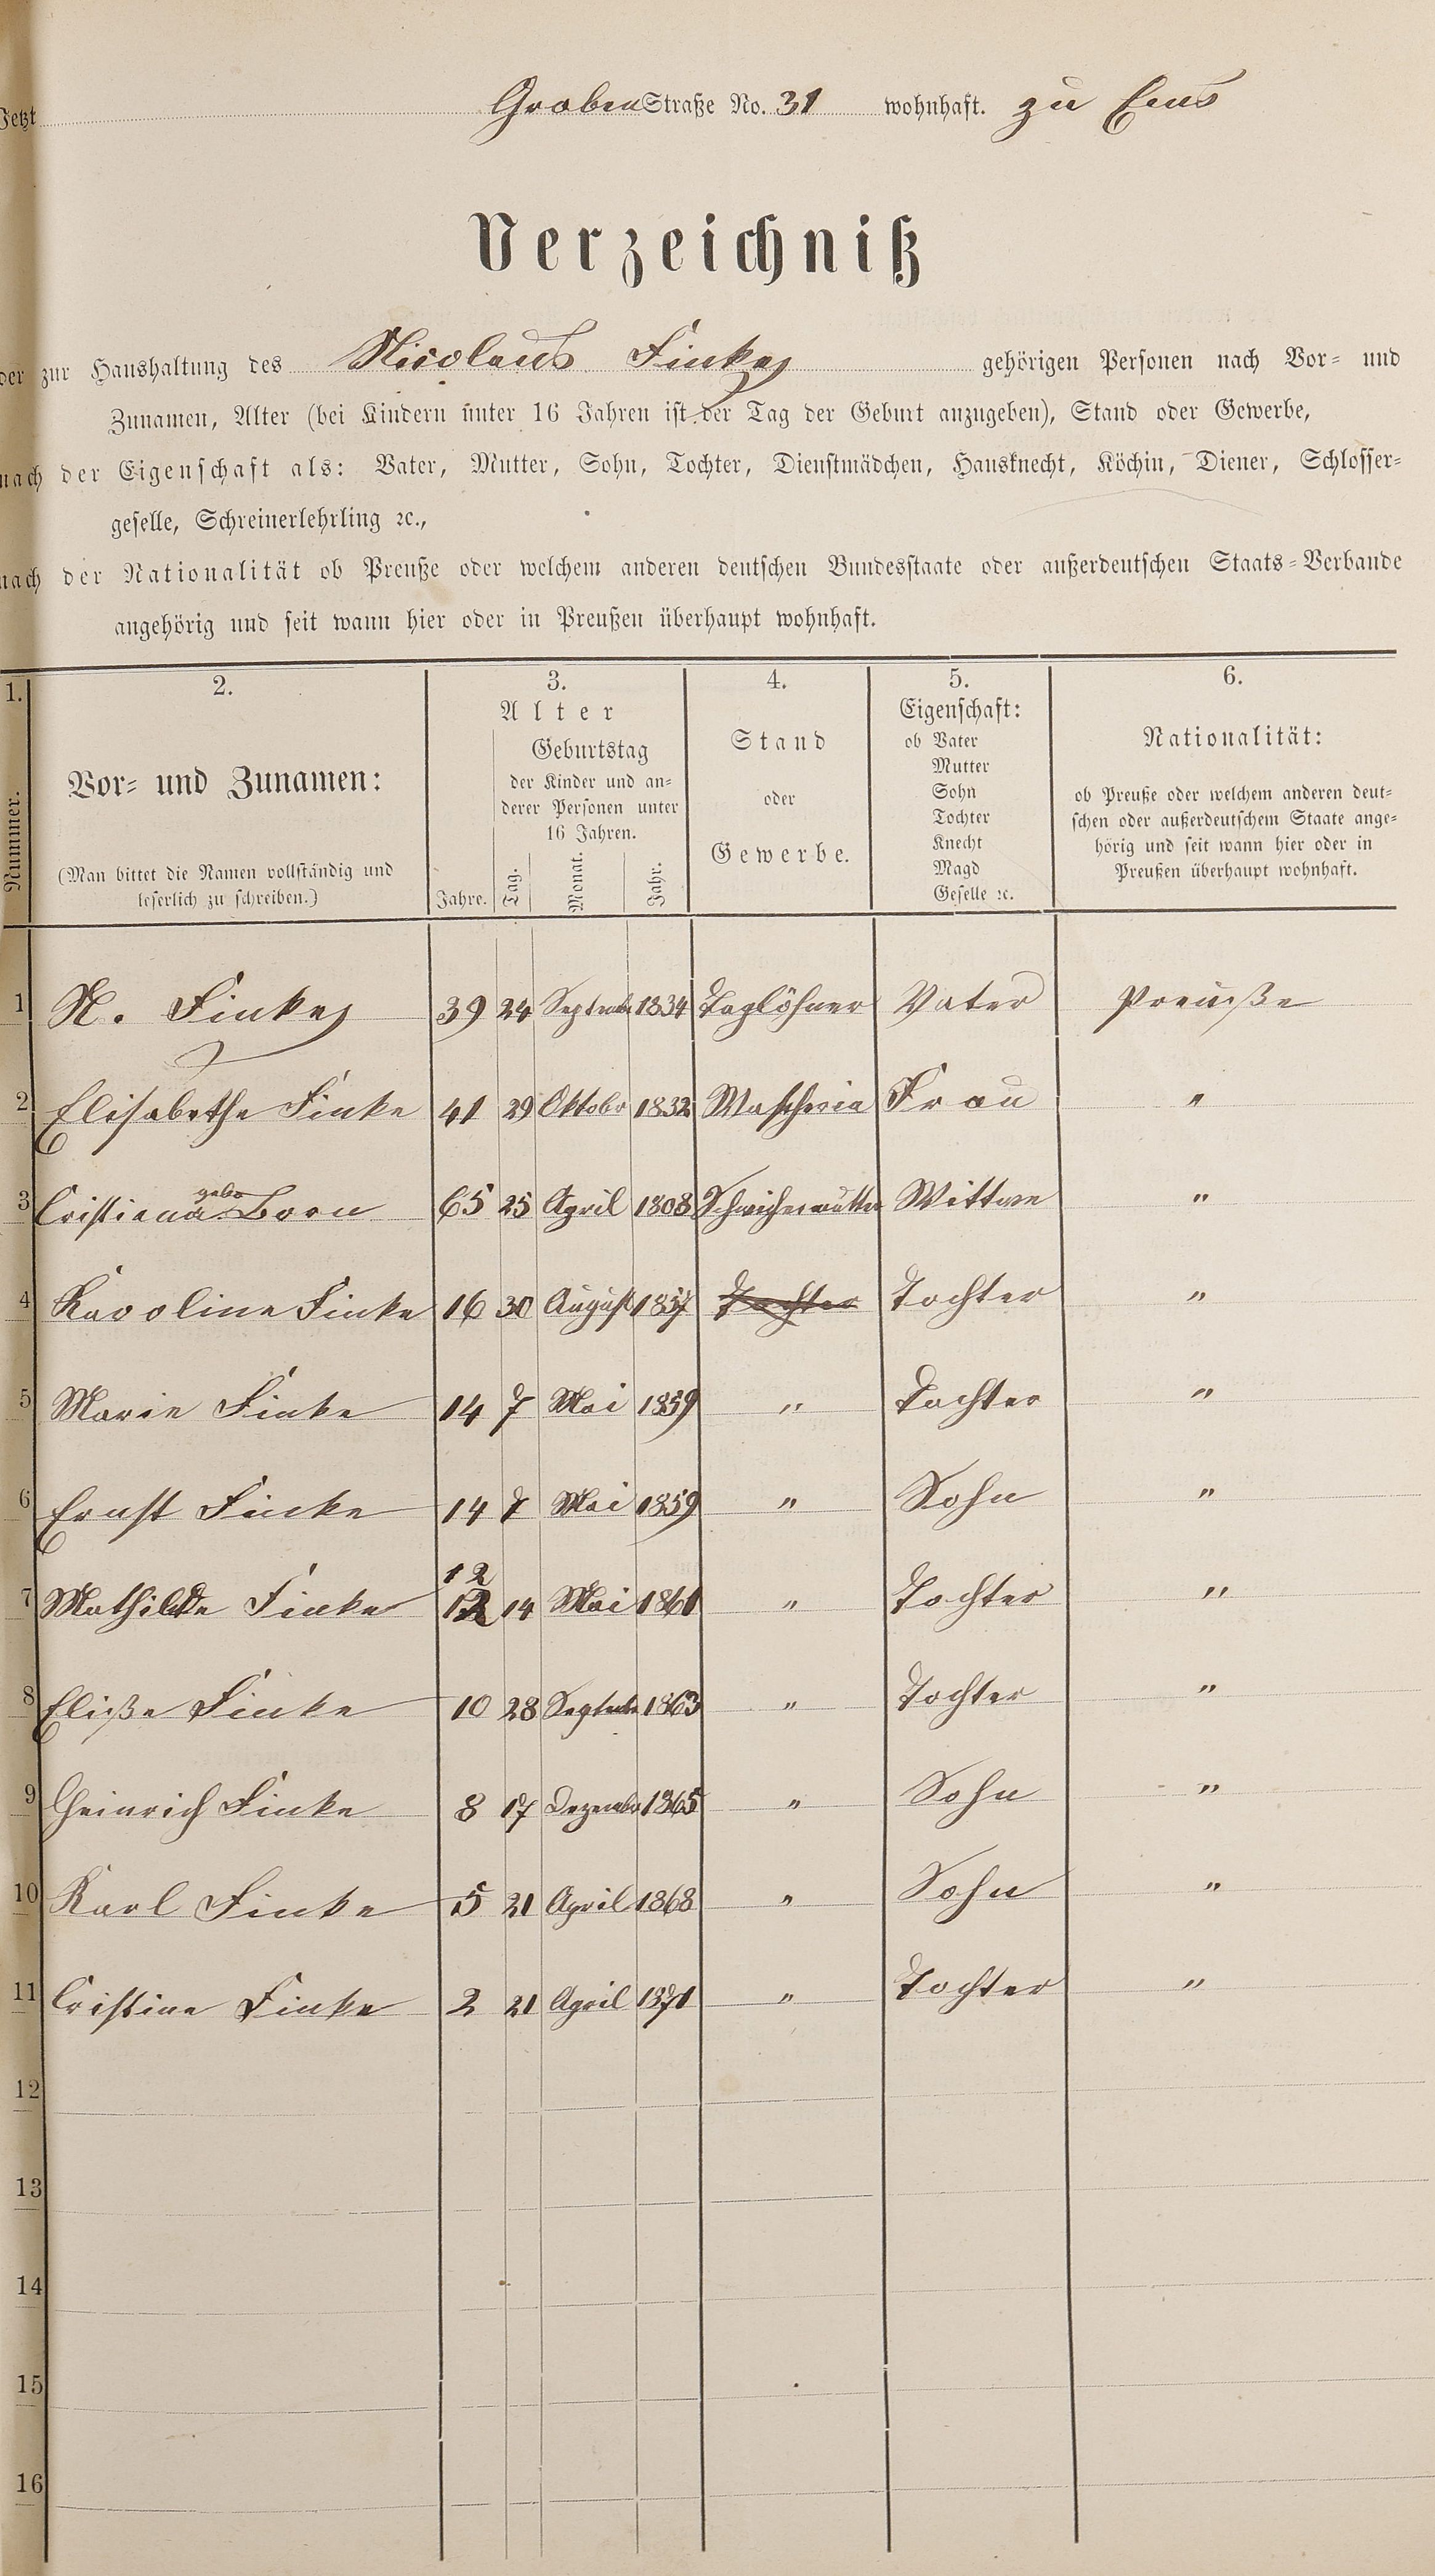 Jetzt Graben Straße No. 31 wohnhaft. zu Ems
Verzeichniß
der zur Haushaltung des Nicolaus Finke gehörigen Personen nach Vor- und
Zunamen, Alter (bei Kindern unter 16 Jahren ist der Tag der Geburt anzugeben), Stand oder Gewerbe,
nach der Eigenschaft als: Vater, Mutter, Sohn, Tochter, Dienstmädchen, Hausknecht, Köchin, Diener, Schlosser-
geselle, Schreinerlehrling ꝛc.,
nach der Nationalität ob Preuße oder welchem anderen deutschen Bundesstaate oder außerdeutschen Staats-Verbande
angehörig und seit wann hier oder in Preußen überhaupt wohnhaft.
1.
Nummer.
2.
Vor- und Zunamen:
(Man bittet die Namen vollständig und
leserlich zu schreiben.)
3.
Alter
Jahre.
Geburtstag
der Kinder und an-
derer Personen unter
16 Jahren.
Tag. Monat. Jahr.
4.
Stand
oder
Gewerbe.
5.
Eigenschaft:
ob Vater
Mutter
Sohn
Tochter
Knecht
Magd
Geselle ꝛc.
6.
Nationalität:
ob Preuße oder welchem anderen deut-
schen oder außerdeutschem Staate ange-
hörig und seit wann hier oder in
Preußen überhaupt wohnhaft.
1 N. Finke 39 24 September 1834 Taglöhner Vater Preuße
2 Elisabethe Finke 41 29 Oktobr 1832 Wascherin Frau "
3 Cristiana geb. Born 65 25 April 1808 Schwichermutter Wittwe "
4 Karoline Finke 16 30 August 1857 Tochter Tochter "
5 Marie Finke 14 7 Mai 1859 " Tochter "
6 Ernst Finke 14 7 Mai 1859 " Sohn "
12
7 Mathilde Finke 12 14 Mai 1861 " Tochter "
8 Eliße Finke 10 28 September 1863 " Tochter "
9 Heinrich Finke 8 17 Dezember 1865 " Sohn "
10 Karl Finke 5 21 April 1868 " Sohn "
11 Cristine Finke 2 21 April 1871 " Tochter "
12
13
14
15
16